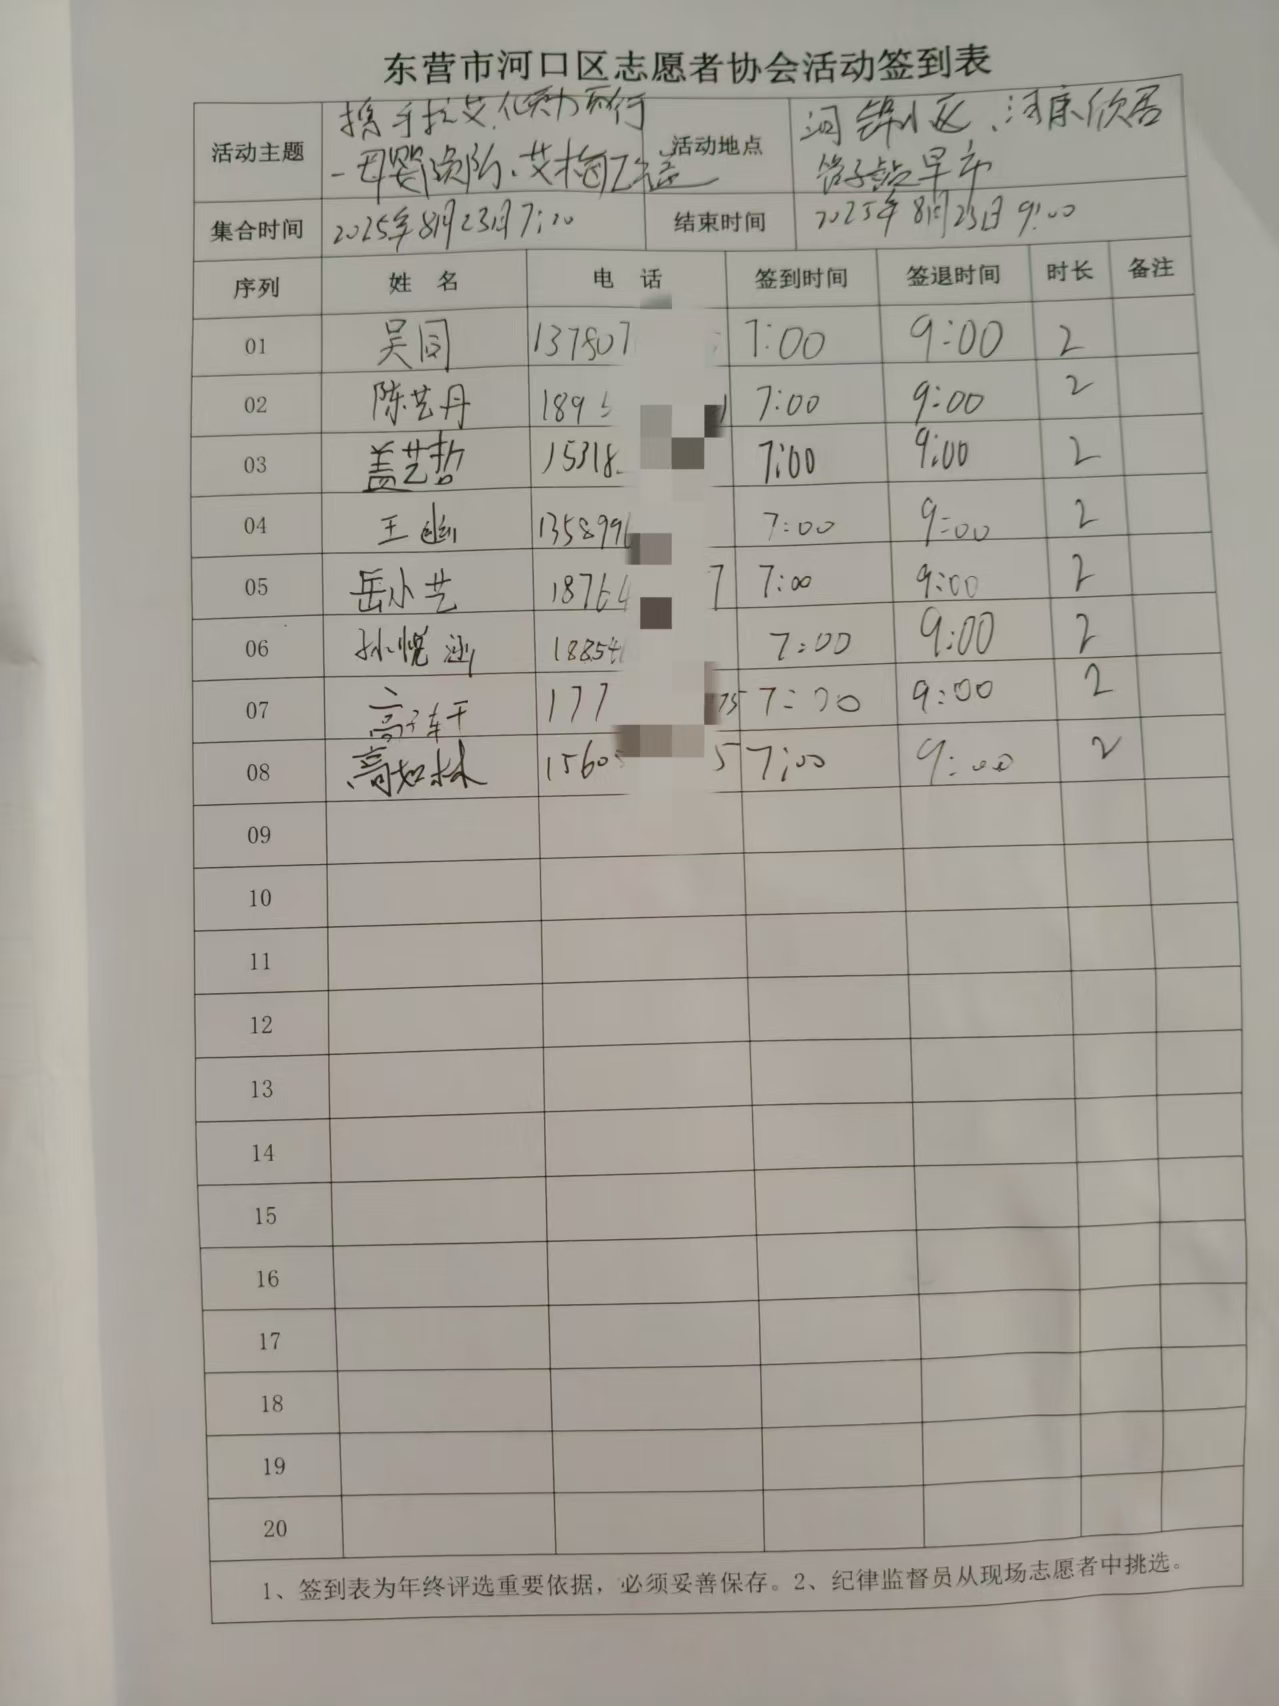 东营市河口区志愿者协会活动签到表
活动主题 携手抗艾,化艾力而行 活动地点 河锦小区、河康欣居
-母婴预防、艾梅乙 鸽子点早市
集合时间 2025年8月23日7:00 结束时间 2025年8月23日9:00
序列 姓 名 电 话 签到时间 签退时间 时长 备注
01 吴同 137807 7:00 9:00 2
02 陈艺丹 189 7:00 9:00 2
03 盖艺哲 15318 7:00 9:00 2
04 王幽 135899 7:00 9:00 2
05 岳小艺 18764 7 7:00 9:00 2
06 孙悦涵 18854 7:00 9:00 2
07 高子轩 177 75 7:00 9:00 2
08 高如林 1560 5 7:00 9:00 2
09
10
11
12
13
14
15
16
17
18
19
20
1、签到表为年终评选重要依据，必须妥善保存。2、纪律监督员从现场志愿者中挑选。